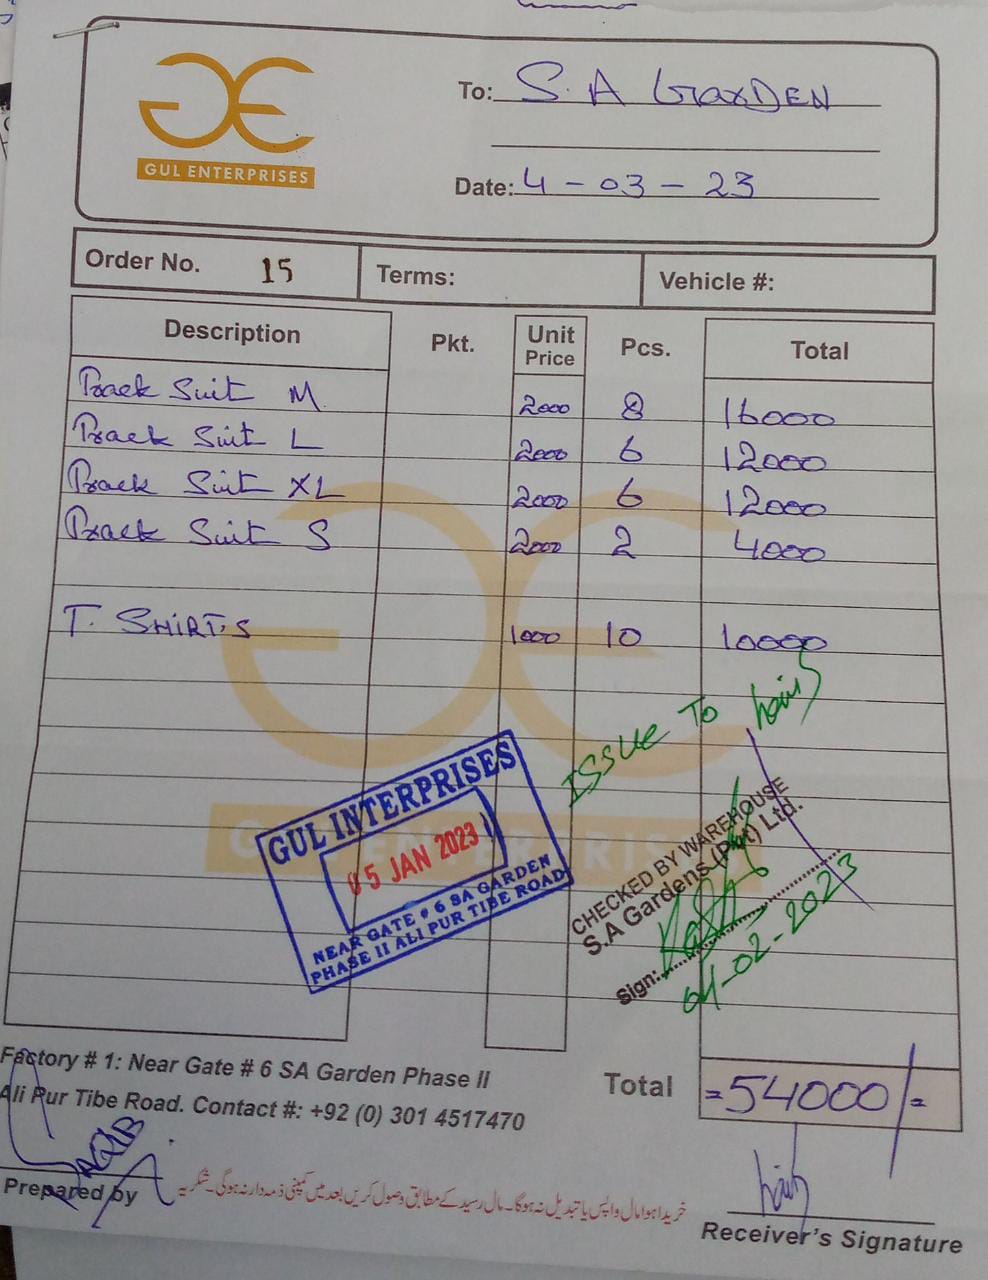 GE
GUL ENTERPRISES
To: S.A GarDEN
Date: 4-03-23
Order No. 15 Terms: Vehicle #:
Description Pkt. Unit Price Pcs. Total
Track Suit M 2000 8 16000
Track Suit L 2000 6 12000
Track Suit XL 2000 6 12000
Track Suit S 2000 2 4000
T. SHIRT,S 1000 10 10000
ISSUE To
GUL INTERPRISES
05 JAN 2023
NEAR GATE # 6 SA GARDEN
PHASE II ALI PUR TIBE ROAD
CHECKED BY WAREHOUSE
S.A Gardens (Pvt) Ltd.
Sign:
04-02-2023
GUL ENTERPRISES
Factory # 1: Near Gate # 6 SA Garden Phase II
Ali Pur Tibe Road. Contact #: +92 (0) 301 4517470
Total =54000/=
AQIB
Prepared by
خریدا ہوا مال واپس یا تبدیل نہ ہوگا۔ مال رسید کے مطابق وصول کریں بعد میں کمپنی ذمہ دار نہ ہوگی۔ شکریہ
Receiver's Signature